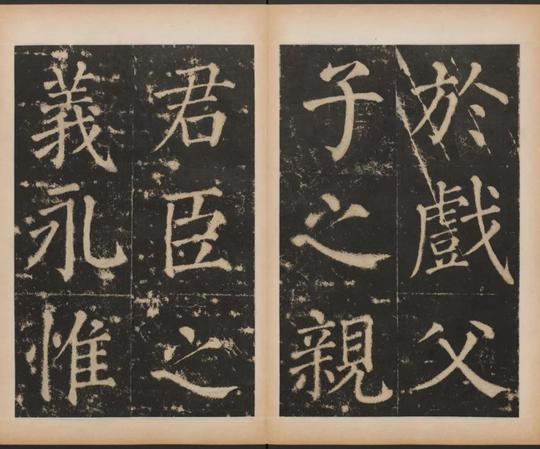 於戲父
子之親
君臣之
義永惟